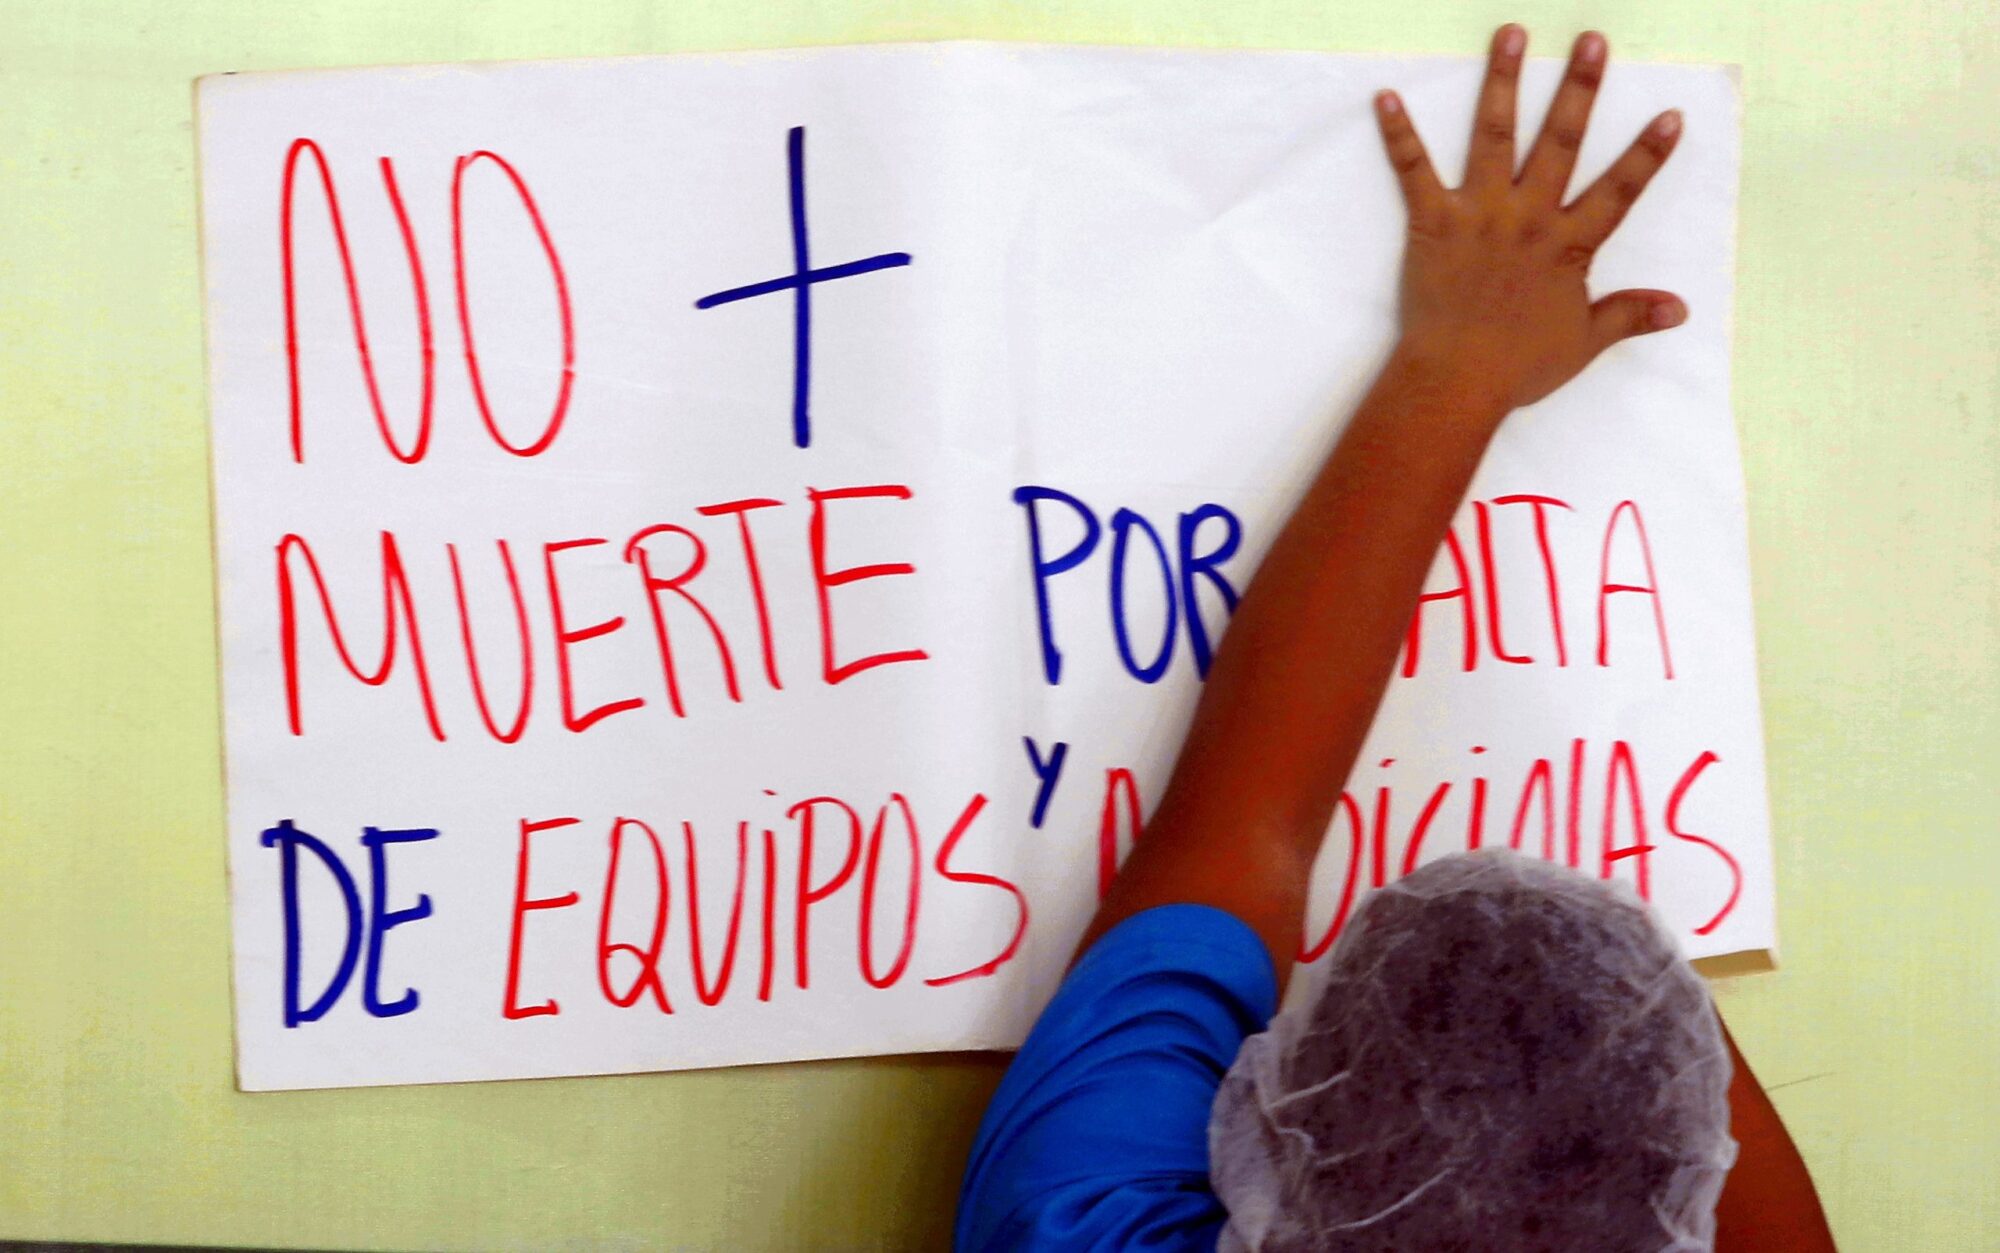 NO +
MUERTE POR FALTA
DE EQUiPOS Y MEDiCiNAS